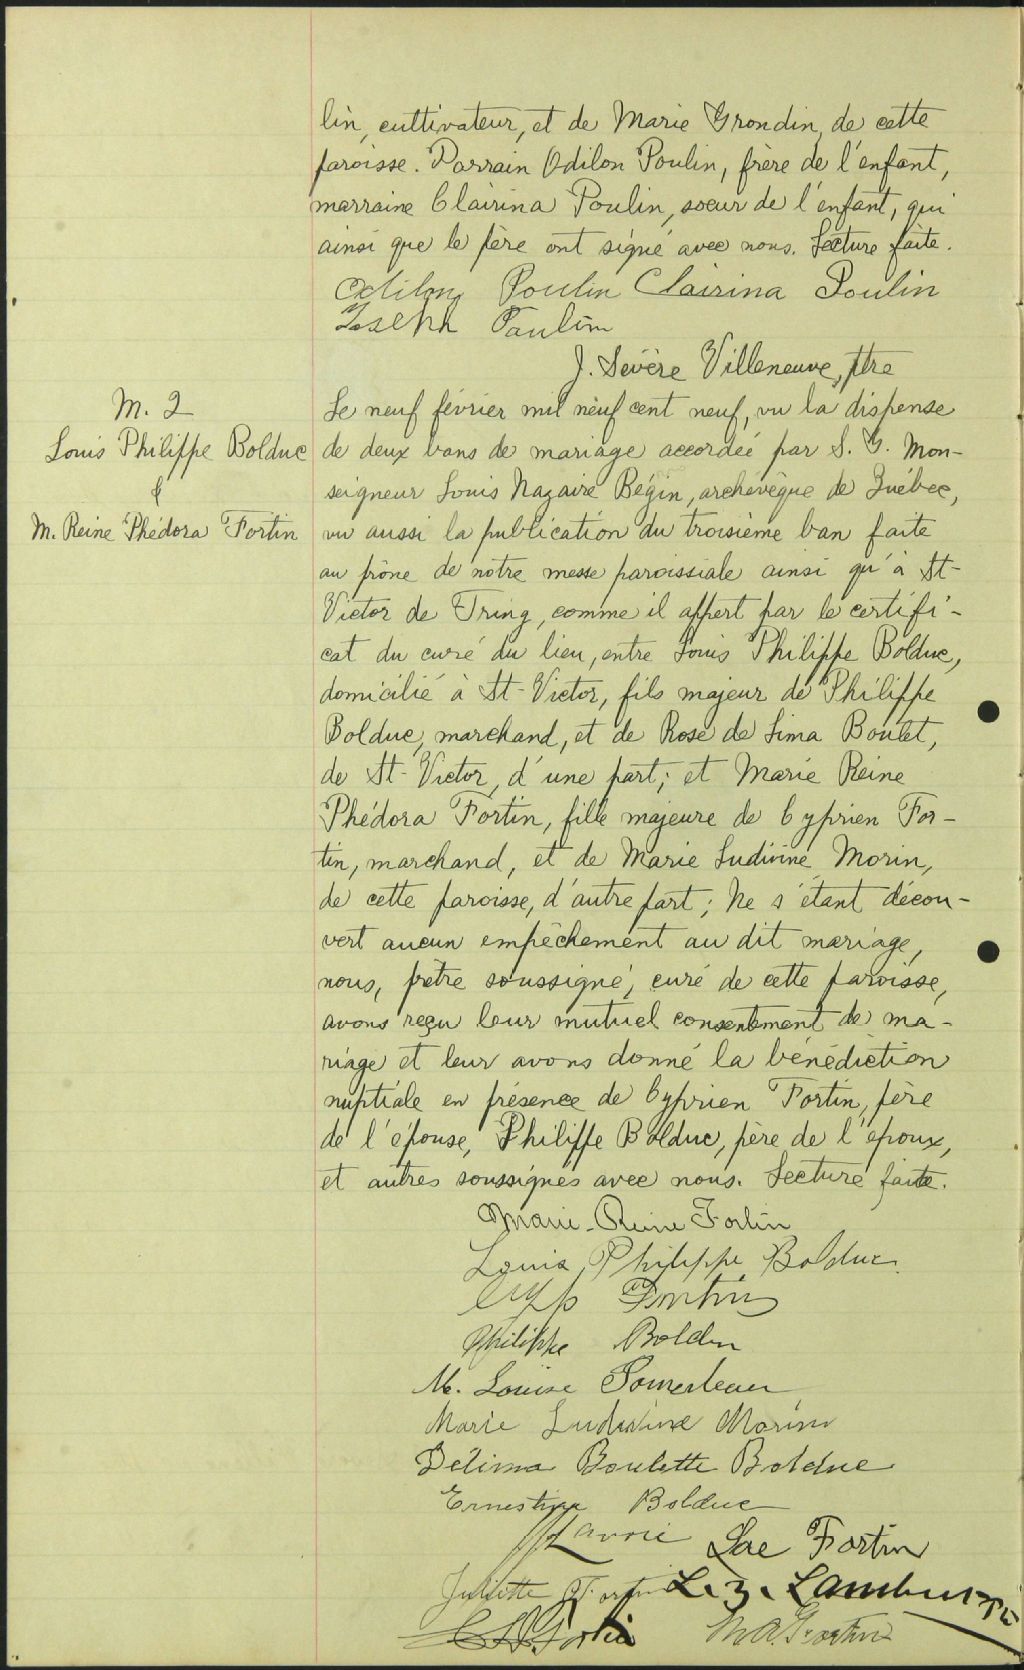 lin, cultivateur, et de Marie Grondin, de cette
paroisse. Parrain Odilon Poulin, frère de l'enfant,
marraine Clairina Poulin, soeur de l'enfant, qui
ainsi que le père ont signé avec nous. Lecture faite.
Odilon Poulin Clairina Poulin
Joseph Poulin
J. Sévère Villeneuve, ptre
M. 2
Louis Philippe Bolduc
&
M. Reine Phédora Fortin
Le neuf février mil neuf cent neuf, vu la dispense
de deux bans de mariage accordée par S. G. Mon-
seigneur Louis Nazaire Bégin, archevêque de Québec,
vu aussi la publication du troisième ban faite
au prône de notre messe paroissiale ainsi qu'à St-
Victor de Tring, comme il appert par le certifi-
cat du curé du lieu, entre Louis Philippe Bolduc,
domicilié à St-Victor, fils majeur de Philippe
Bolduc, marchand, et de Rose de Lima Boulet,
de St-Victor, d'une part; et Marie Reine
Phédora Fortin, fille majeure de Cyprien For-
tin, marchand, et de Marie Ludivine Morin,
de cette paroisse, d'autre part; Ne s'étant décou-
vert aucun empêchement au dit mariage,
nous, prêtre soussigné, curé de cette paroisse,
avons reçu leur mutuel consentement de ma-
riage et leur avons donné la bénédiction
nuptiale en présence de Cyprien Fortin, père
de l'épouse, Philippe Bolduc, père de l'époux,
et autres soussignés avec nous. Lecture faite.
Marie-Reine Fortin
Louis Philippe Bolduc
Cyp Fortin
Philippe Bolduc
M. Louise Pomerleau
Marie Ludivine Morin
Délima Boulette Bolduc
Ernestine Bolduc
Lavoie Lae Fortin
Juliette Fortin L. Z. Lambert, ptre
Fortin M A Fortin